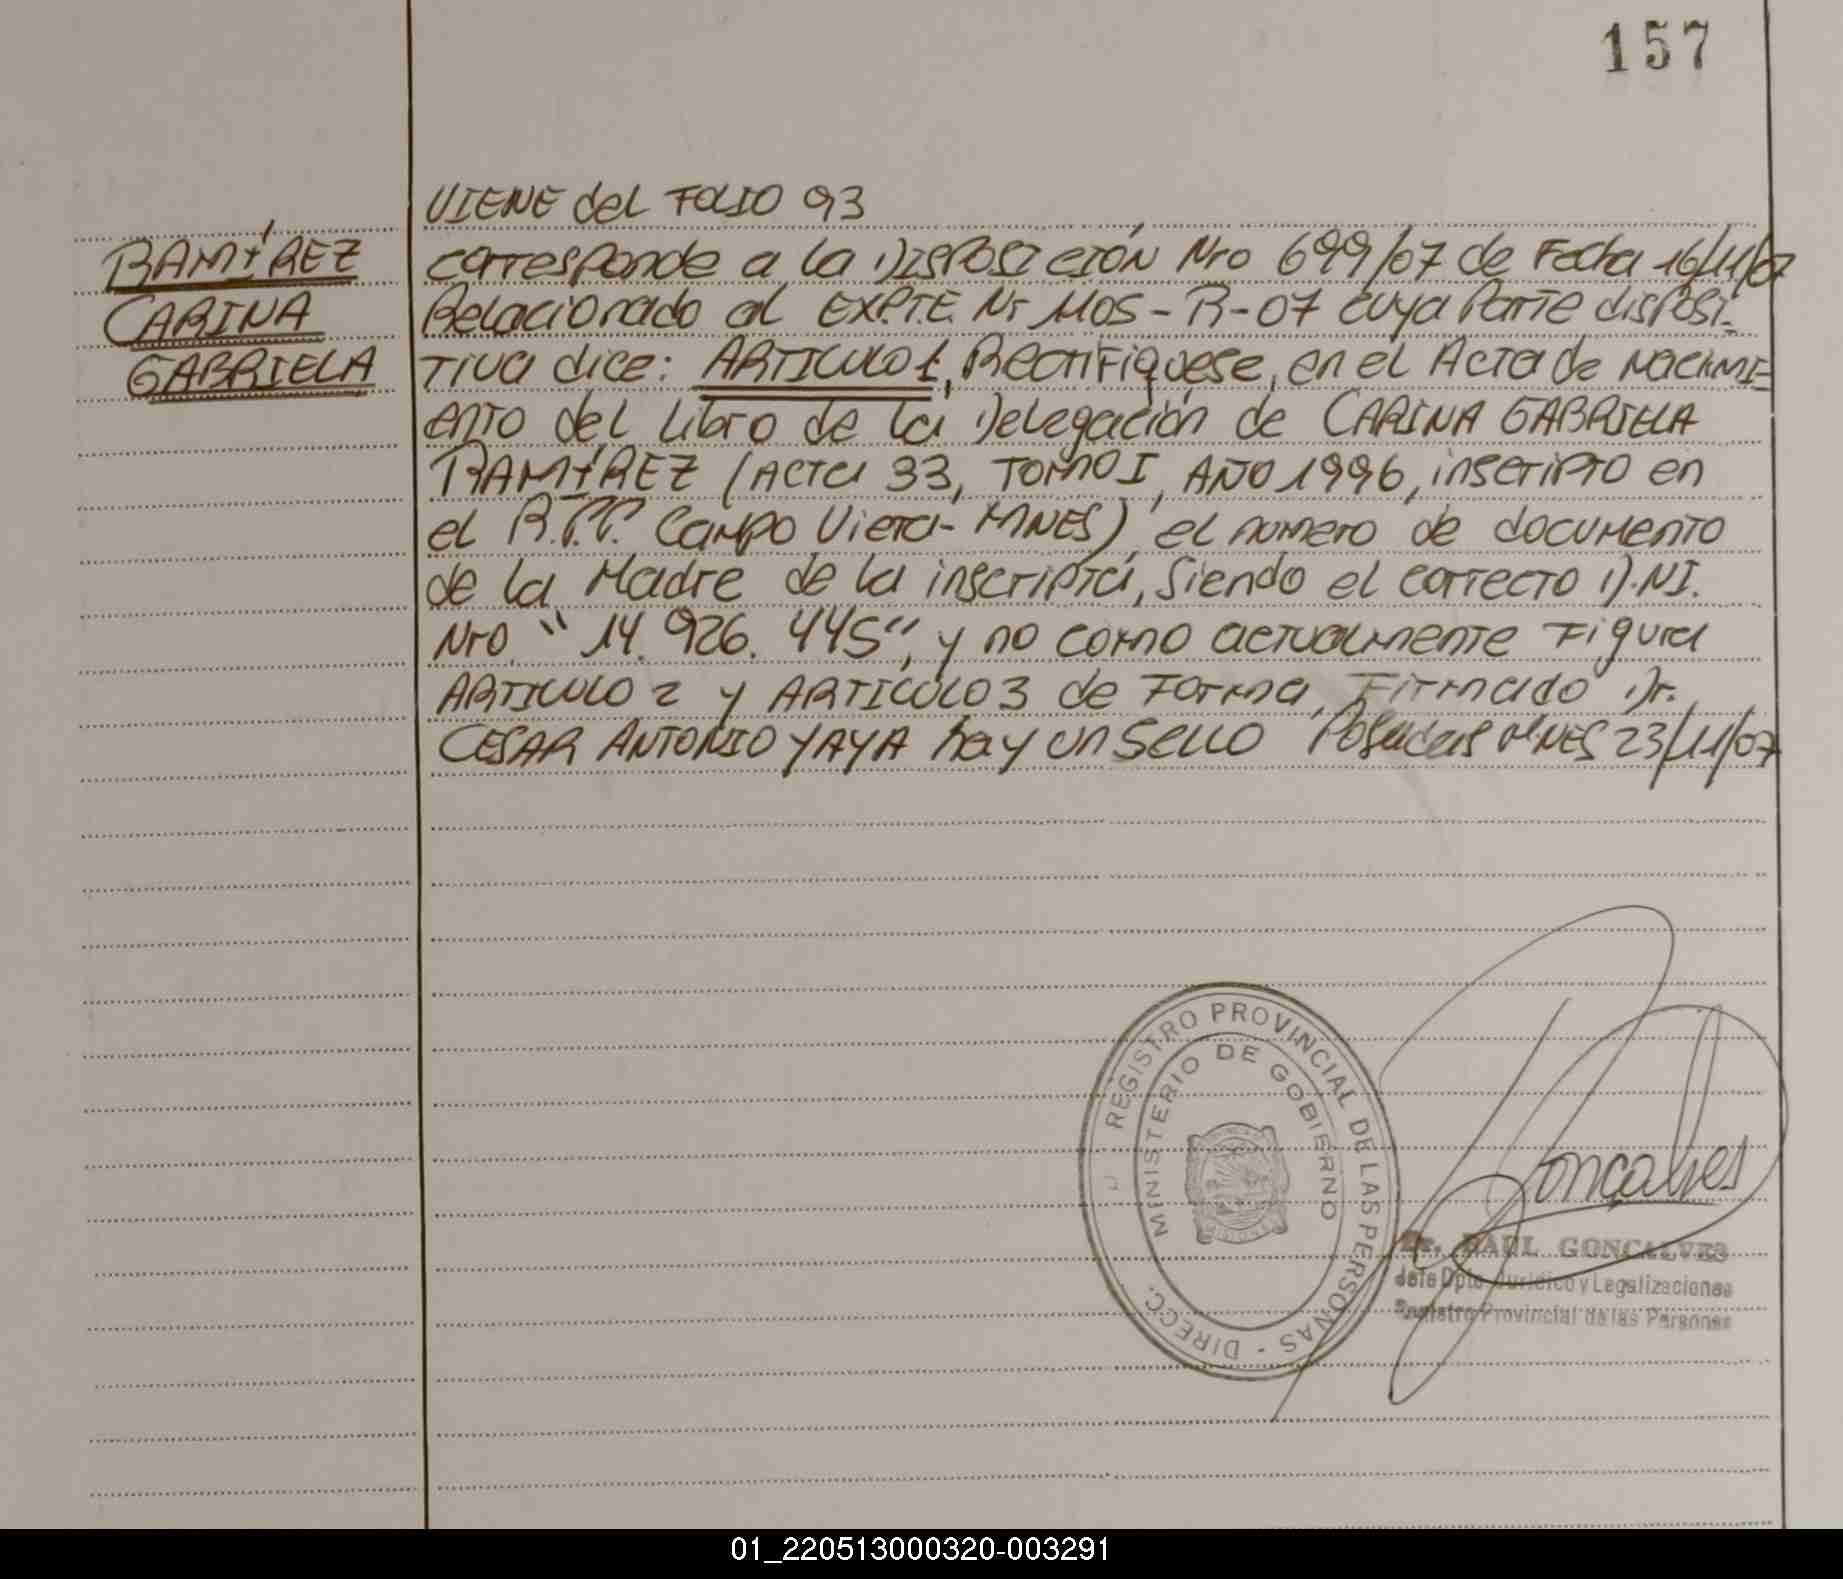 157
VIENE del FOLIO 93
RAMÍREZ
CARINA
GABRIELA
corresponde a la DISPOSICIÓN Nro 699/07 de Fecha 16/11/07
Relacionado al EXPTE. Nr 1105-R-07 cuya Parte disposi-
tiva dice: ARTICULO 1, Rectifíquese, en el Acta de Nacimi-
ento del Libro de la Delegación de CARINA GABRIELA
RAMÍREZ (Acta 33, TOMO I, AÑO 1996, inscripto en
el R.P.P. Campo Viera-MNES), el numero de documento
de la Madre de la inscripta, Siendo el correcto D.NI.
Nro "14.926.445", y no como actualmente Figura
ARTICULO 2 y ARTICULO 3 de Forma, Firmado Dr.
CESAR ANTONIO YAYA hay un Sello Posadas MNES 23/11/07
REGISTRO PROVINCIAL DE LAS PERSONAS - DIRECC.
MINISTERIO DE GOBIERNO
Gonçalves
Dr. RAUL GONCALVES
Jefe Dpto. Jurídico y Legalizaciones
Registro Provincial de las Personas
01_220513000320-003291